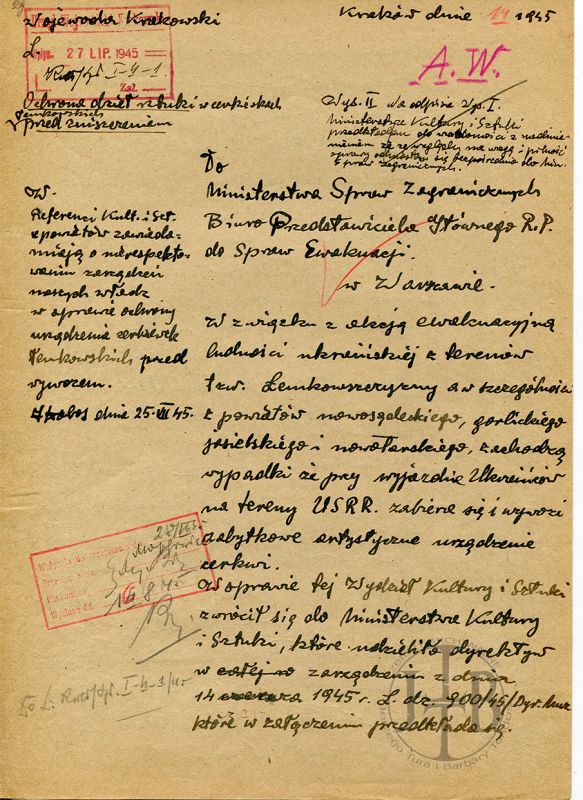 Wojewoda Krakowski
Kraków dnia 14 1945
27 LIP. 1945
L.
Kult/Szt I-4-1.
Zał.
Ochrona dzieł sztuki w cerkiewkach
łemkowskich
przed zniszczeniem
A.W.
Wyp. II na odpisie Wyp. I.
Ministerstwu Kultury i Sztuki
przedkładam do wiadomości z nadmie-
nieniem że ze względu na wagę i pilność
sprawy odniosłem się bezpośrednio do Min.
Spraw zagranicznych.
Do
Ministerstwa Spraw Zagranicznych
Biuro Przedstawiciela Głównego R.P.
do Spraw Ewakuacji.
w Warszawie.
W.
Referenci Kult. i Szt.
z powiatów zawiada-
miają o nierespekto-
waniu zarządzeń
naszych władz
w sprawie ochrony
urządzenia cerkiewek
łemkowskich przed
wywozem.
dnia 25.VII 45.
W związku z akcją ewakuacyjną
ludności ukraińskiej z terenów
tzw. Łemkowszczyzny a w szczególności
z powiatów nowosądeckiego, gorlickiego
jasielskiego i nowotarskiego, zachodzą
wypadki że przy wyjeździe Ukraińców
na tereny USRR. zabiera się i wywozi
zabytkowe artystyczne urządzenie
cerkwi.
W sprawie tej Wydział Kultury i Sztuki
zwrócił się do Ministerstwa Kultury
i Sztuki, które udzieliło dyrektyw
w całej zarządzenia z dnia
14 czerwca 1945 r. L. dz. 900/45/Dyr. Muz
które w załączeniu przedkłada się.
28/VII
14.8.45
Do L: Kult/Szt. I-4-1/45